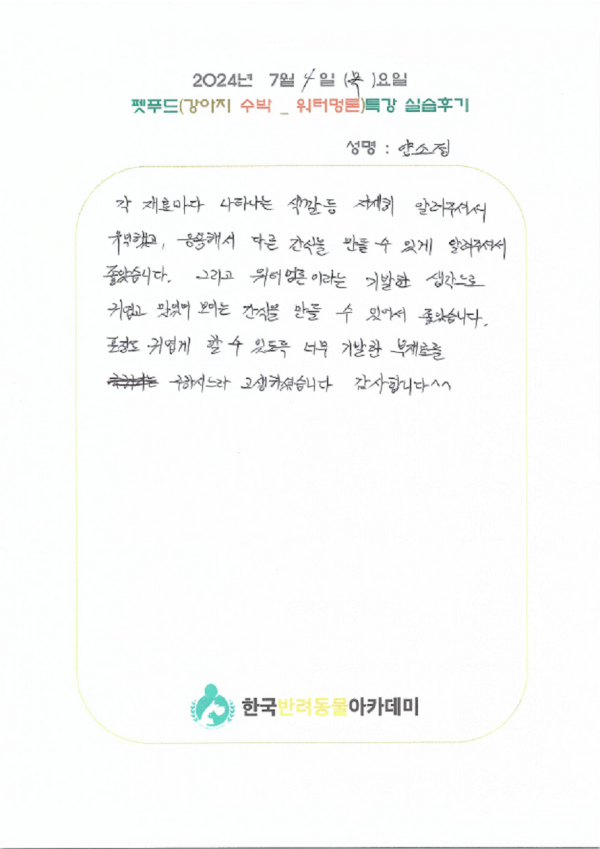 2024년 7월 4일 (목)요일
펫푸드(강아지 수박 _ 워터멍론)특강 실습후기
성명 : 안소정
각 재료마다 나타나는 색깔등 자세히 알려주셔서
유익했고, 응용해서 다른 간식을 만들 수 있게 알려주셔서
좋았습니다. 그리고 워터멍론이라는 기발한 생각으로
귀엽고 맛있어 보이는 간식을 만들 수 있어서 좋았습니다.
포장도 귀엽게 할 수 있도록 너무 기발한 부재료를
구하시느라 고생하셨습니다 감사합니다^^
한국반려동물아카데미